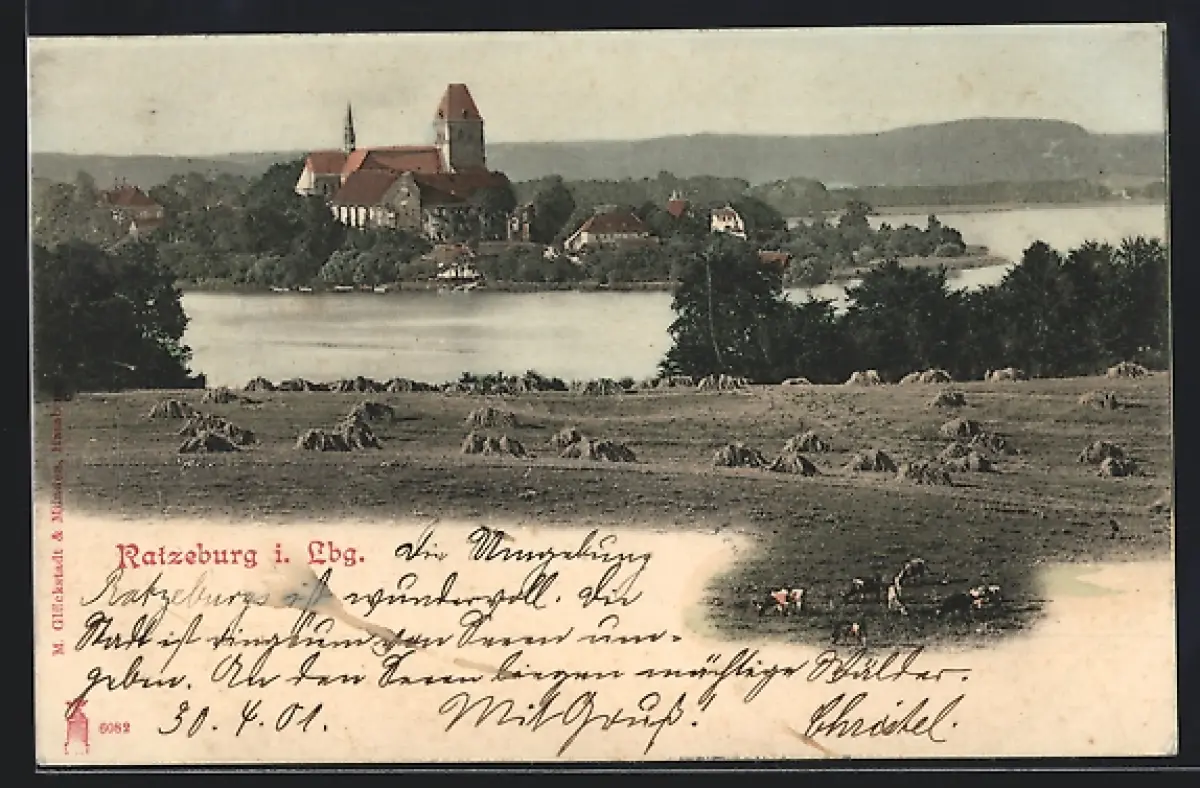 Ratzeburg i. Lbg. Die Umgebung
Ratzeburgs ist wundervoll. Die
Stadt ist ringsum von Seeen um-
geben. An den Seeen liegen mächtige Wälder.
30. 4. 01. Mit Gruß! Christel.
6082
M. Glückstadt & Münden, Hamb.